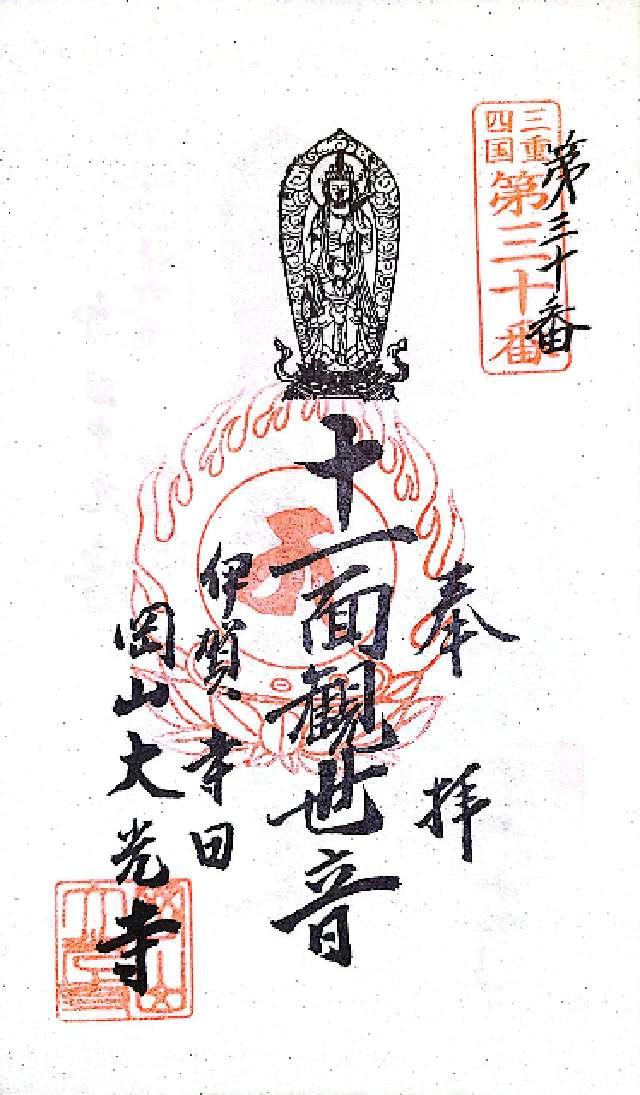 三重
四国
第三十番
第三十番
奉拝
十一面観世音
伊賀寺田
岡山大光寺